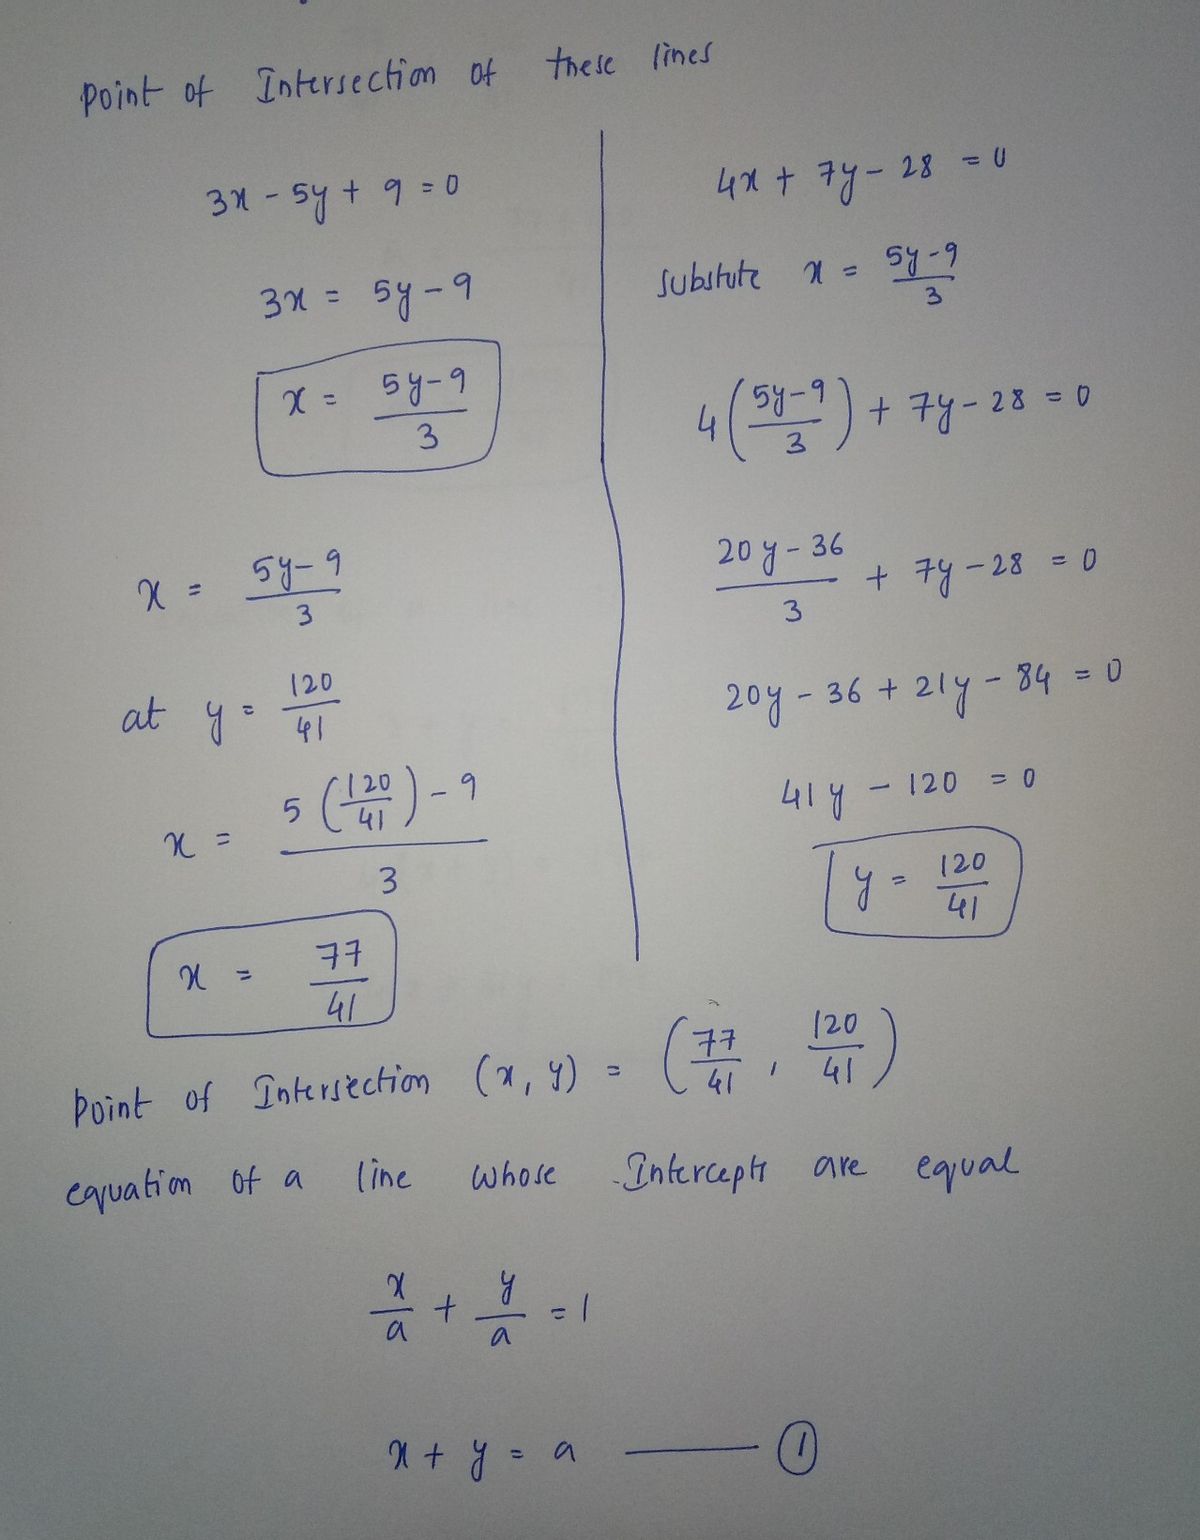 Point of Intersection of these lines
3x - 5y + 9 = 0
3x = 5y - 9
x = 5y-9/3
x = 5y-9/3
at y = 120/41
x = 5(120/41) - 9/3
x = 77/41
4x + 7y - 28 = 0
substute x = 5y-9/3
4(5y-9/3) + 7y - 28 = 0
20y - 36/3 + 7y - 28 = 0
20y - 36 + 21y - 84 = 0
41y - 120 = 0
y = 120/41
Point of Intersection (x, y) = (77/41, 120/41)
equation of a line whose Intercepts are equal
x/a + y/a = 1
x + y = a —— ①